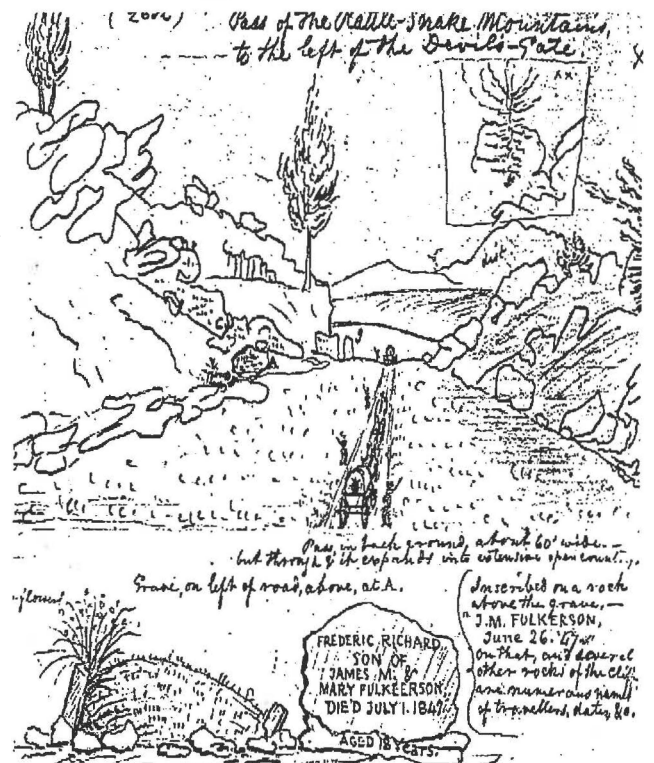 Pass of the Rattle-Snake Mountains,
to the left of the Devils-Gate.
Pass, in back ground, about 60' wide. —
but through it expands into extensive open country.
Grave, on left of road, above, at A.
flowers
FREDERIC, RICHARD
SON OF
JAMES M. &
MARY FULKEERSON
DIED JULY 1. 1847
AGED 18 YEARS.
Inscribed on a rock
above the grave, —
"J.M. FULKERSON,
June 26. '47"
on that, and several
other rocks of the cliff
are numerous names
of travellers, dates, &c.